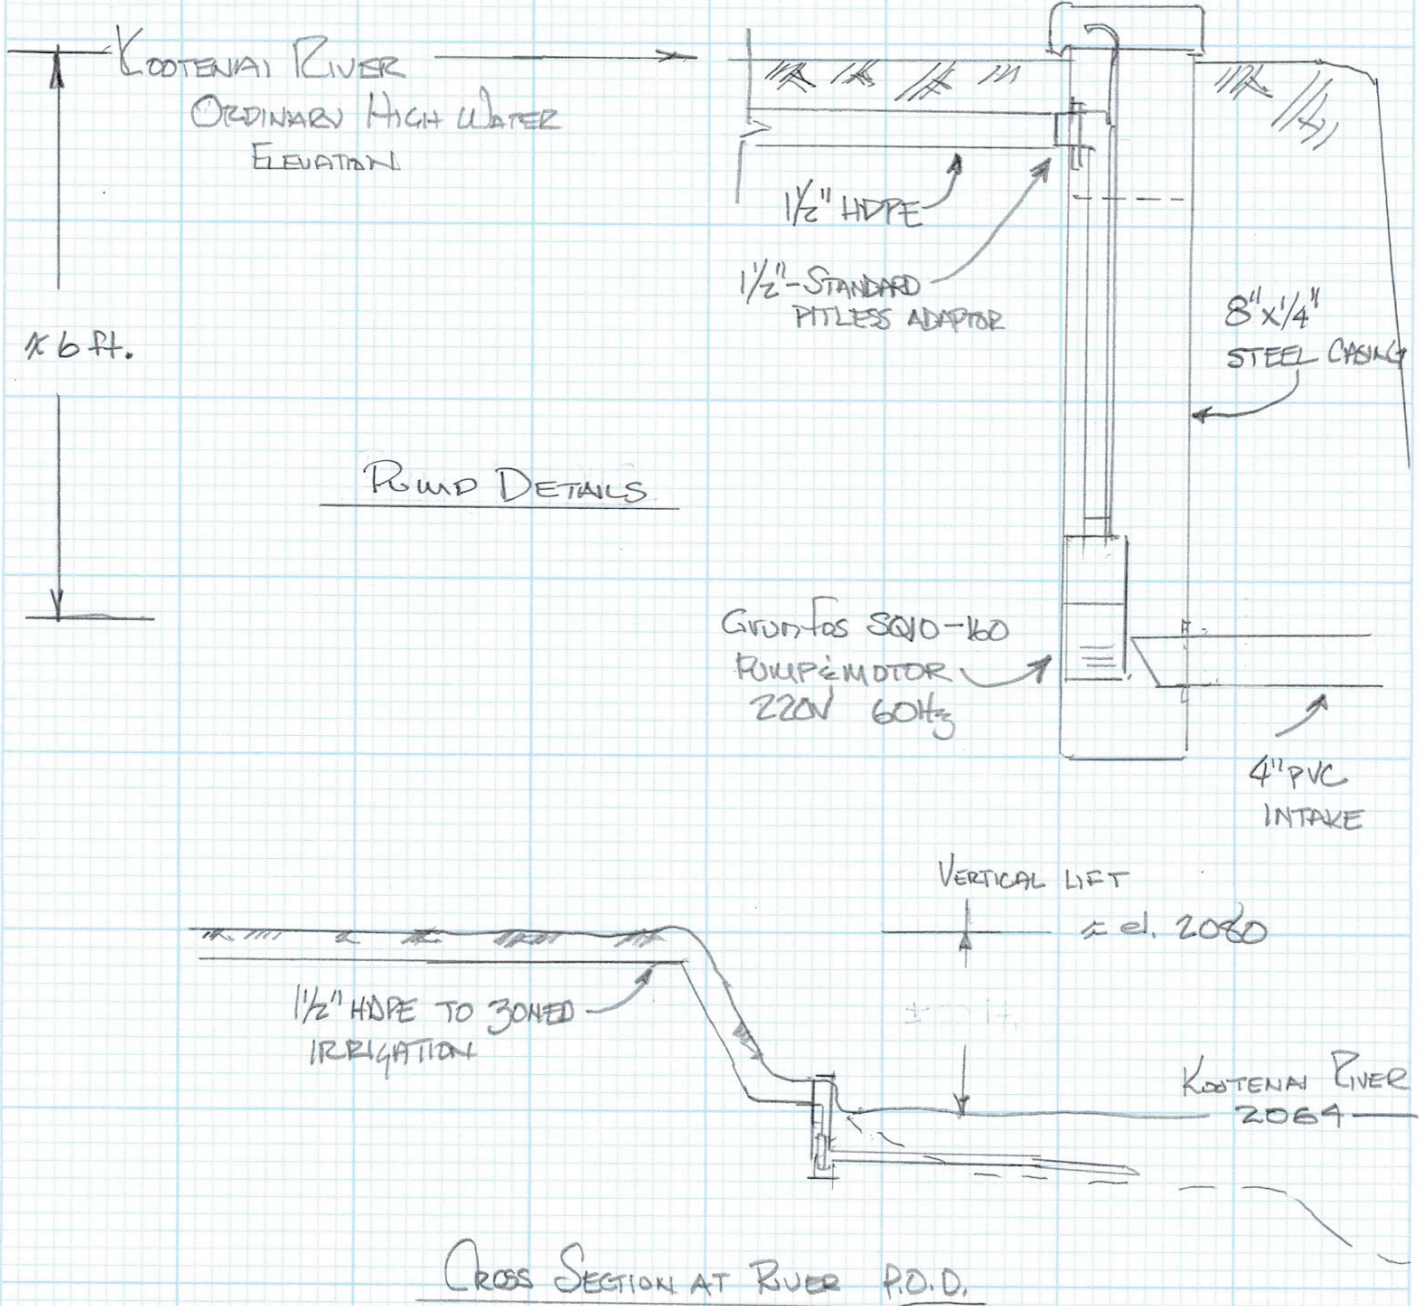 KOOTENAI RIVER
ORDINARY HIGH WATER
ELEVATION
≈ 6 ft.
1½" HDPE
1½"-STANDARD
PITLESS ADAPTOR
8"x¼"
STEEL CASING
PUMP DETAILS
Grunfos SQ10-160
PUMP & MOTOR
220V 60Hz
4" PVC
INTAKE
VERTICAL LIFT
≈ el. 2080
1½" HDPE TO ZONED
IRRIGATION
KOOTENAI RIVER
2064
CROSS SECTION AT RIVER P.O.D.